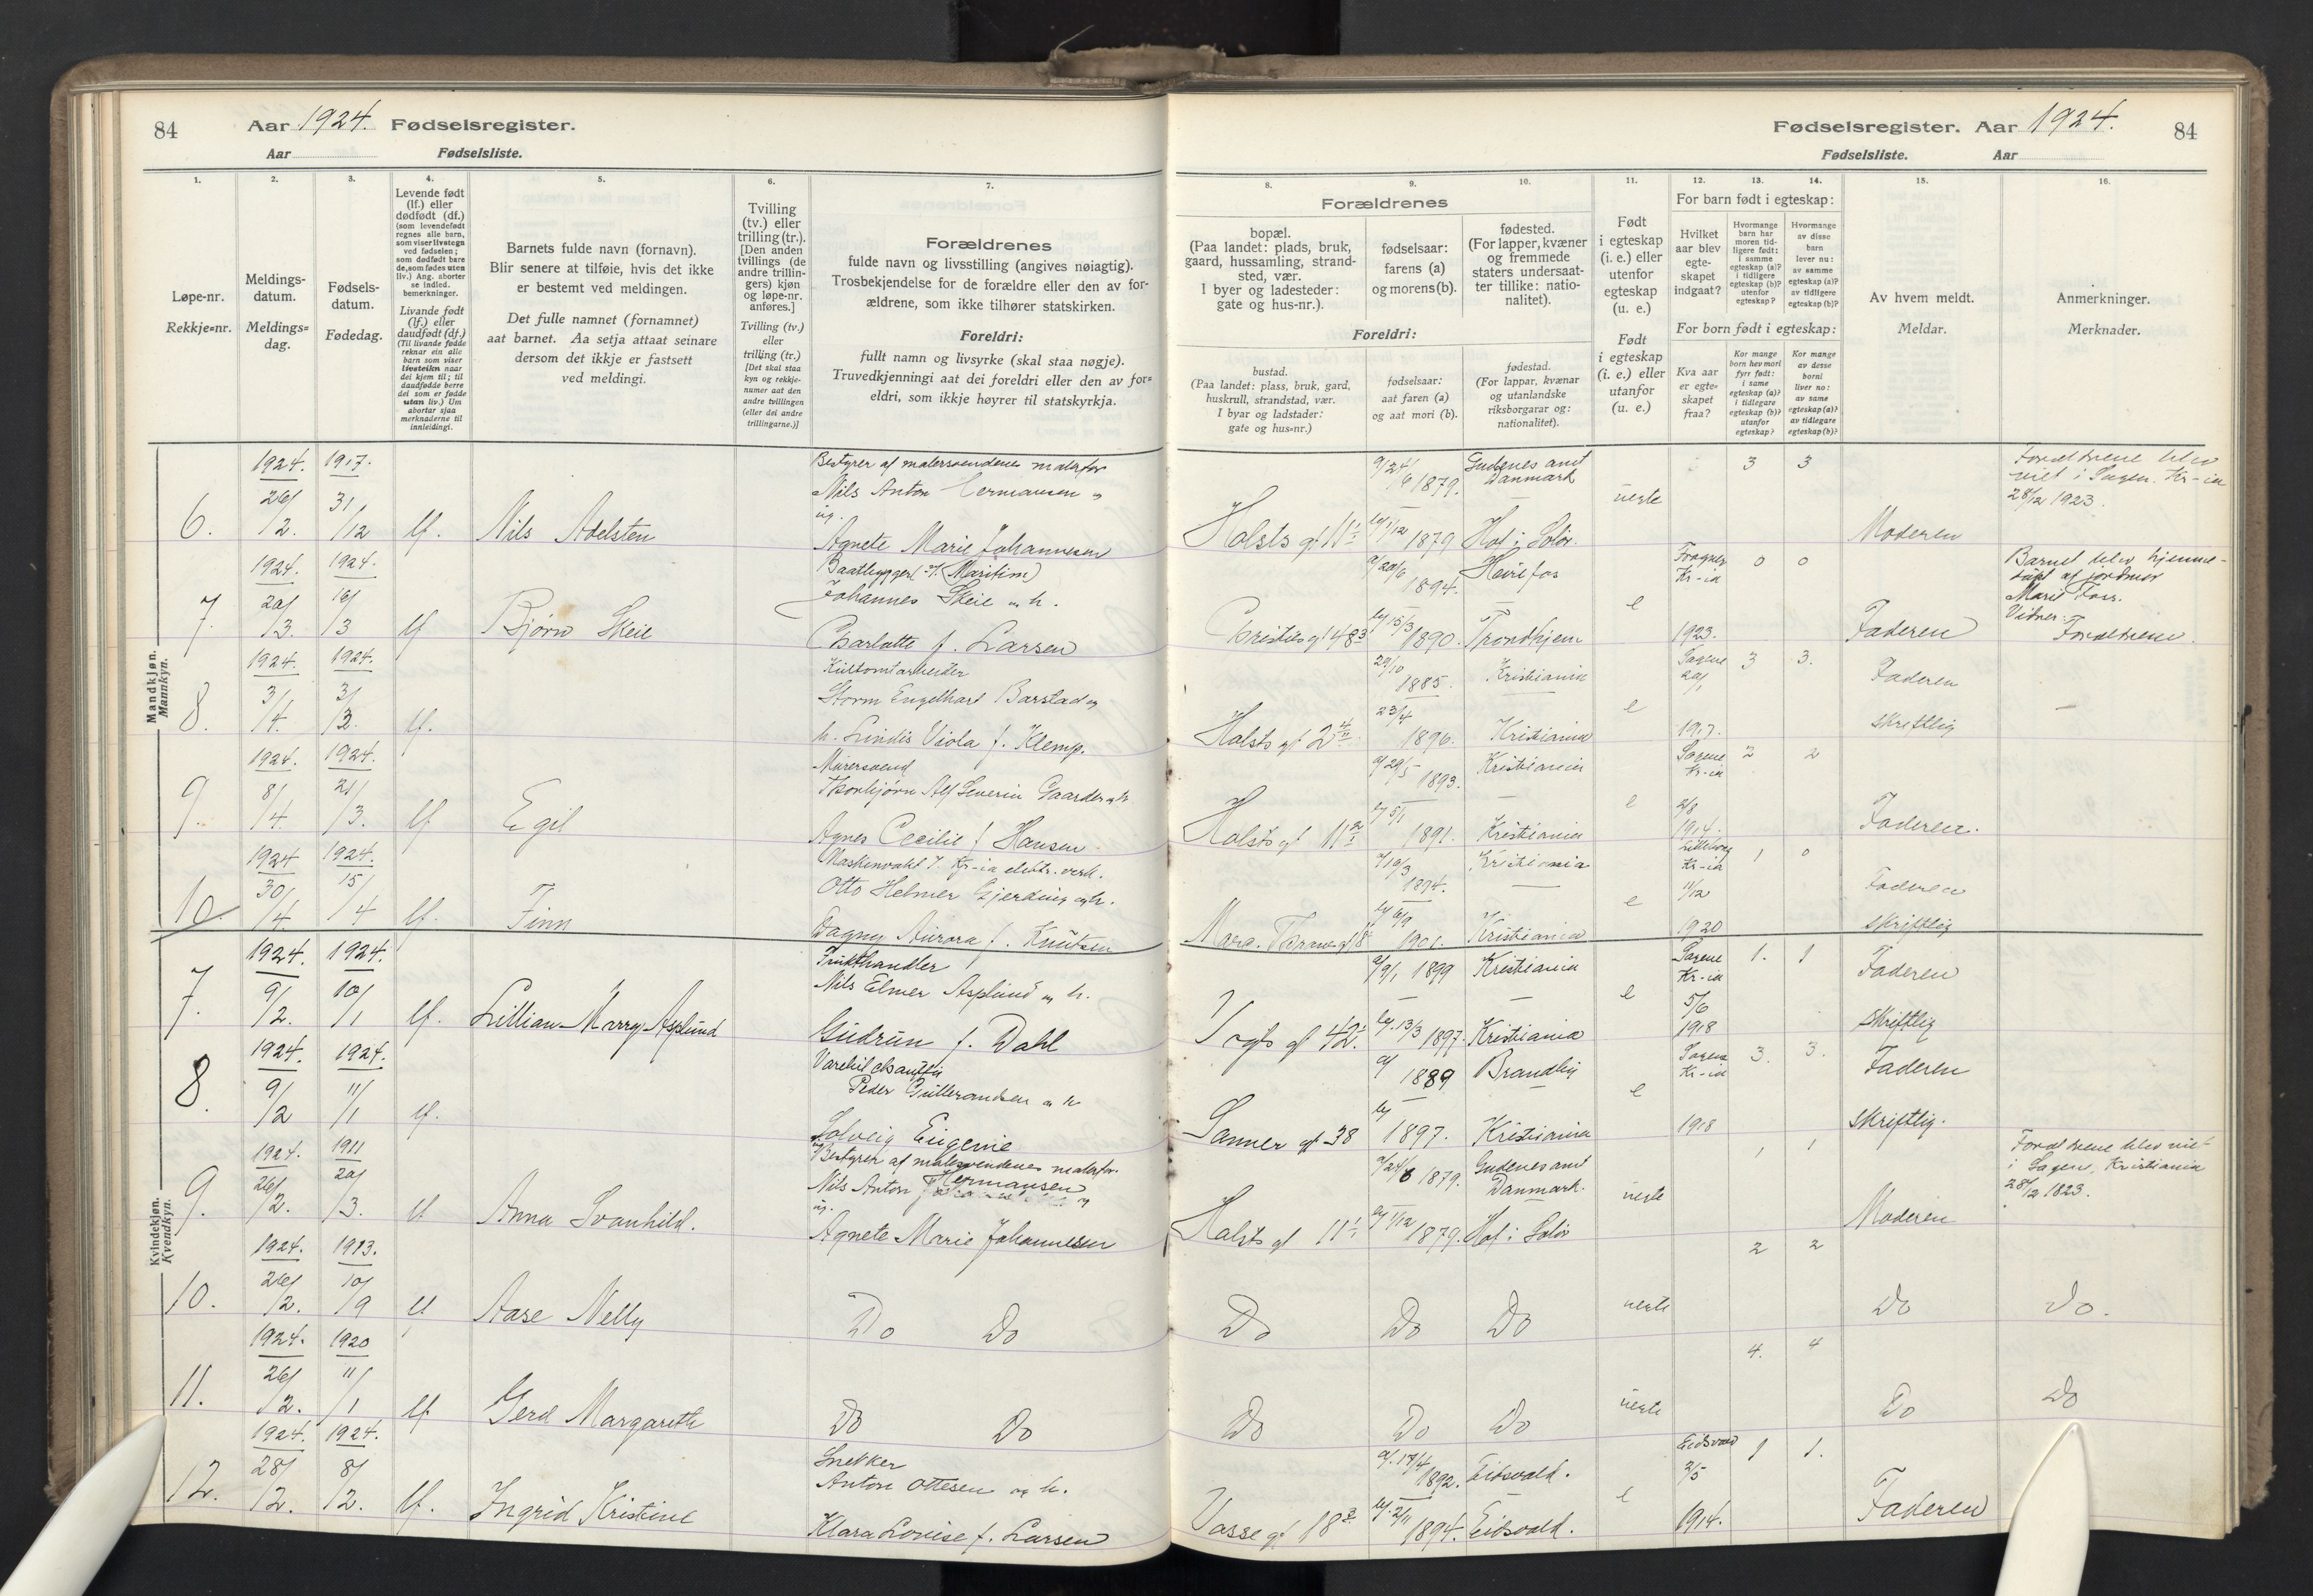 84 Aar 1924. Fødselsregister.
Aar Fødselsliste.
Fødselsregister. Aar 1924. 84
Fødselsliste. Aar
1. 2. 3. 4. 5. 6. 7.
Løpe-nr.
Rekkje=nr.
Meldings-
datum.
Meldings=
dag.
Fødsels-
datum.
Fødedag.
Levende født
(lf.) eller
dødfødt (df.)
(som levendefødt
regnes alle barn,
som viser livstegn
ved fødselen;
som dødfødt bare
de, som fødes uten
liv.) Ang. aborter
se indled.
bemerkninger.
Livande født
(lf.) eller
daudfødt (df.)
(Til livande fødde
reknar ein alle
barn som viser
livsteikn naar
dei kjem til; til
daudfødde berre
dei som er fødde
utan liv.) Um
abortar sjaa
merknaderne til
innleidingi.
Barnets fulde navn (fornavn).
Blir senere at tilføie, hvis det ikke
er bestemt ved meldingen.
Det fulle namnet (fornamnet)
aat barnet. Aa setja attaat seinare
dersom det ikkje er fastsett
ved meldingi.
Tvilling
(tv.) eller
trilling (tr.).
[Den anden
tvillings (de
andre trillin-
gers) kjøn
og løpe-nr.
anføres.]
Tvilling (tv.)
eller
trilling (tr.)
[Det skal staa
kyn og rekkje-
numer aat den
andre tvillingen
(eller dei andre
trillingarne.)]
Forældrenes
fulde navn og livsstilling (angives nøiagtig).
Trosbekjendelse for de forældre eller den av for-
ældrene, som ikke tilhører statskirken.
Foreldri:
fullt namn og livsyrke (skal staa nøgje).
Truvedkjenningi aat dei foreldri eller den av for=
eldri, som ikkje høyrer til statskyrkja.
8. 9. 10. 11. 12. 13. 14. 15. 16.
Forældrenes
bopæl.
(Paa landet: plads, bruk,
gaard, hussamling, strand-
sted, vær.
I byer og ladesteder:
gate og hus-nr.).
fødselsaar:
farens (a)
og morens (b).
fødested.
(For lapper, kvæner
og fremmede
staters undersaat-
ter tillike: natio-
nalitet).
Foreldri:
bustad.
(Paa landet: plass, bruk, gard,
huskrull, strandstad, vær.
I byar og ladstader:
gate og hus=nr.)
fødselsaar:
aat faren (a)
og aat mori (b).
fødestad.
(For lappar, kvænar
og utanlandske
riksborgarar og:
nationalitet).
Født
i egteskap
(i. e.) eller
utenfor
egteskap
(u. e.)
Født
i egteskap
(i. e.) eller
utanfor
(u. e.)
For barn født i egteskap:
Hvilket
aar blev
egte-
skapet
indgaat?
Hvormange
barn har
moren tid-
ligere født:
i samme
egteskap (a)?
i tidligere
egteskap (b)?
utenfor
egteskap?
Hvormange
av disse
barn
lever nu:
av samme
egteskap (a)?
av tidligere
egteskap (b)?
For born født i egteskap:
Kva aar
er egte-
skapet
fraa?
Kor mange
born hev mori
fyrr født:
i same
egteskap (a)?
i tidlegare
egteskap (b)?
utanfor
egteskap?
Kor mange
av desse
borni
liver no:
av same
egteskap (a)?
av tidlegare
egteskap (b)?
Av hvem meldt.
Meldar.
Anmerkninger.
Merknader.
Mandkjøn.
Mannkyn.
6. 1924. 26/2. 1917. 31/12 lf. Nils Adelsten
Bestyrer af malersvendenes malerfor
Nils Anton Hermansen og
ug.
Agnete Marie Johannesen
Holsts gt 11 a/ 24/6 1879. b/ 1/12 1879
Danmark
Hof i Solør.
uegte 3 3 Moderen
Forældrene blev
viet i Sagen. Kr-ia
28/12 1923.
7. 1924. 20/3. 1924. 16/3 lf Bjørn Skeie
Baatbygger (Maritim)
Johannes Skeie og h.
Charlotte f. Larsen
Christies gt 48 a/ 20/6 1894. b/ 15/3 1890. Trondhjem
e Fragner Kr-ia 1923. 0 0 Faderen
Barnet blev hjemme-
døpt af jordmor
Marie Foss.
Vidner:
Forældrene.
8. 1924. 3/4. 1924. 3/3. lf.
Storm Engelhart Barstad og
h. Lindis Viola f. Klemp.
Holsts gt 2 29/10 1885. Kristiania 23/4 1896. Kristiania
e Sagene 20/1 1917. 3 3. Faderen
skriftlig
9. 1924. 8/4. 1924. 21/3. lf Egil
Murersvend
Thorbjørn Alf Severin Gaarder og h.
Agnes Cecilie f Hansen.
Holsts gt 11 a/ 29/5 1893. Kristiania b/ 5/1 1891. Kristiania
e Sagene Kr-ia 2/8 1914. 2 2 Faderen.
10. 1924 30/4. 1924. 15/4 lf. Finn
Maskinvakt v. Kr-ia elektr. verk.
Otto Helmer Gjerding og h.
Dagny Aurora f. Knutsen
Marc. Thranes gt 8 a/ 10/3 1894. Kristiania b/ 6/9 1901. Kristiania
e Kr-ia 11/12 1920 1 0 Faderen
skriftlig
Kvindekjøn.
Kvendkyn.
7. 1924. 9/2. 1924. 10/1 lf. Lillian Marry Asplund
Frukthandler
Nils Elmer Asplund og h.
Gudrun f. Dahl
Vogts gt 42. a/ 9/1 1899 Kristiania b/ 13/3 1897. Kristiania
e Sagene Kr-ia 5/6 1918 1. 1 Faderen
skriftlig
8. 1924. 9/2 1924. 11/1 lf.
Peder Gulbrandsen og h
Solveig Eugenie
Sanner gt 38 a/ 1889 b/ 1897. Kristiania
e Sagene Kr-ia 1918 3. 3. Faderen
skriftlig.
9. 1924. 26/2. 1911 20/3. lf Anna Svanhild.
Bestyrer af malersvendenes malerfor.
Nils Anton Hermansen og
ug.
Agnete Marie Johannesen
Holsts gt 11 a/ 24/6 1879. Danmark. b/ 1/12 1879. Hof i Solør
uegte 1 1 Moderen
Forældrene blev viet
i Sagen, Kristiania
28/12 1823.
10. 1924. 26/2. 1913. 10/9 lf Aase Nelly
Do Do Do Do Do uegte 2 2 Do Do.
11. 1924. 26/2. 1920 11/1 lf. Gerd Margareth
Do Do Do Do Do uegte 4. 4 Do Do
12. 1924. 28/2. 1924. 8/2. lf. Ingrid Kristine
Snekker
Anton Ottesen og h.
Klara Lovise f. Larsen
Vasse gt 18 a/ 17/4 1892. Eidsvold. b/ 2/11 1894. Eidsvold.
e Eidsvold 2/5 1914. 1 1. Faderen